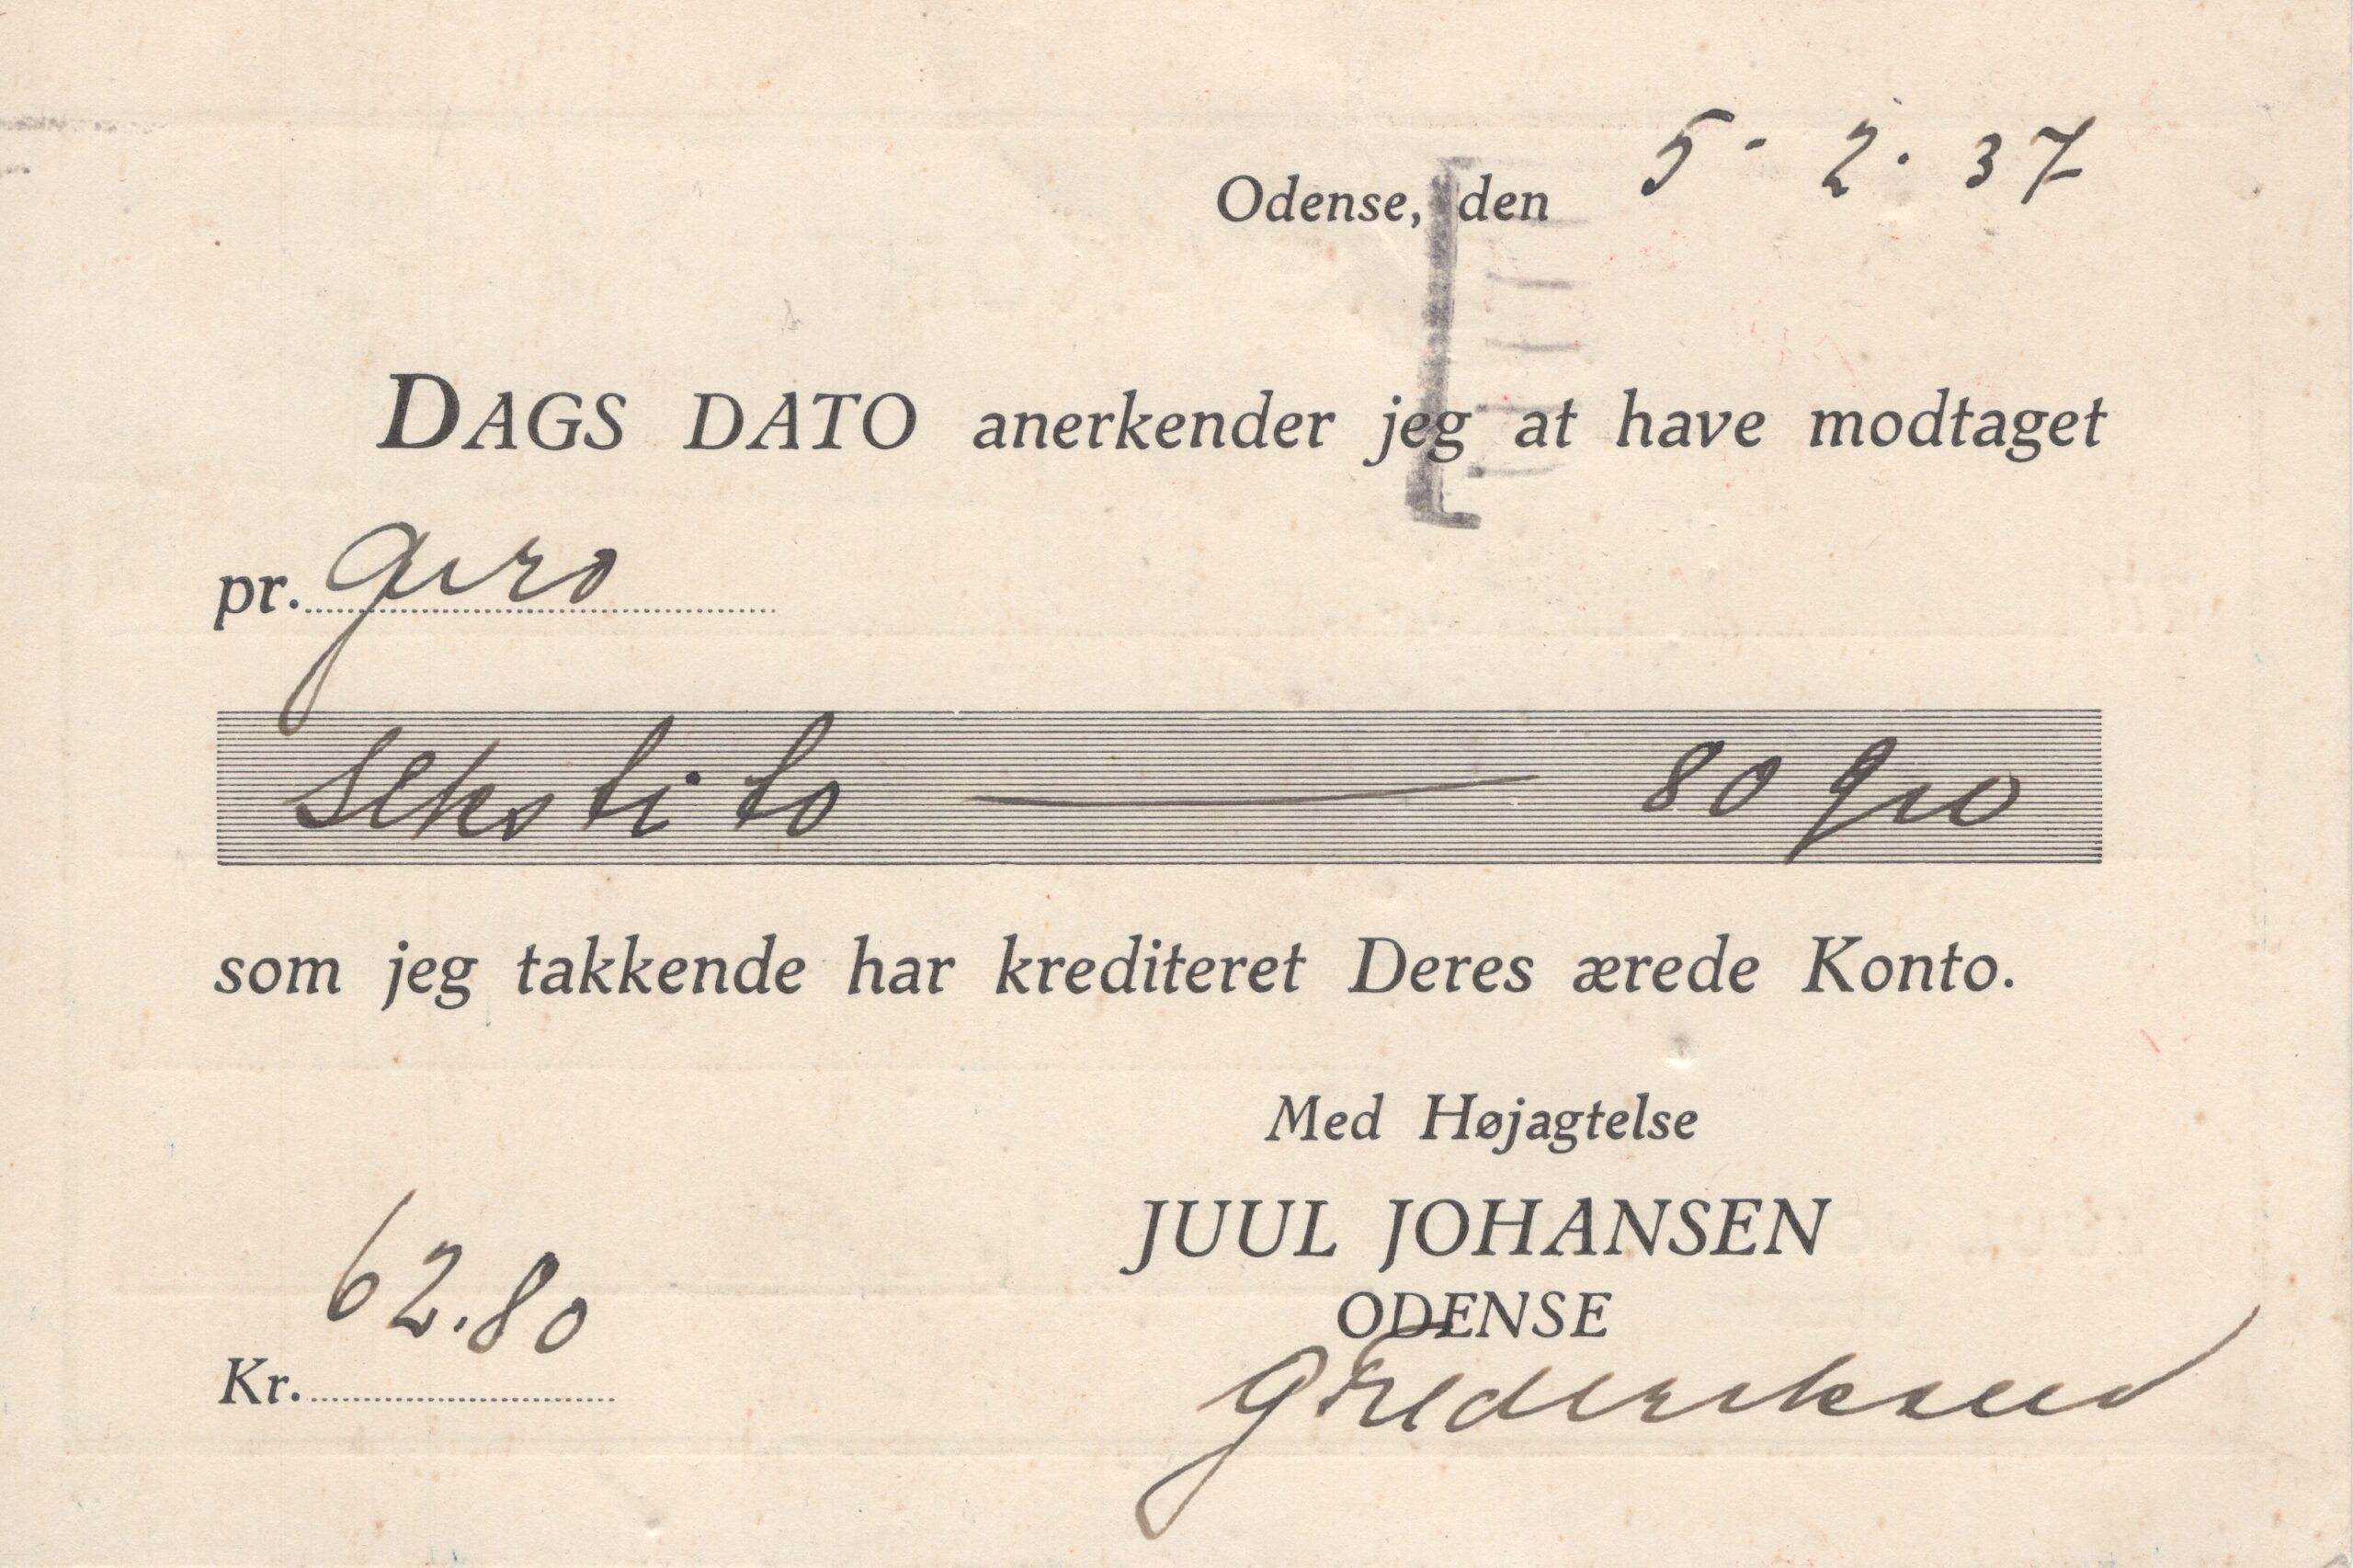 Odense, den 5 - 2. 37
DAGS DATO anerkender jeg at have modtaget
pr. giro
Seksti to — 80 Øre
som jeg takkende har krediteret Deres ærede Konto.
Med Højagtelse
JUUL JOHANSEN
ODENSE
Kr. 62.80
G Frederiksen